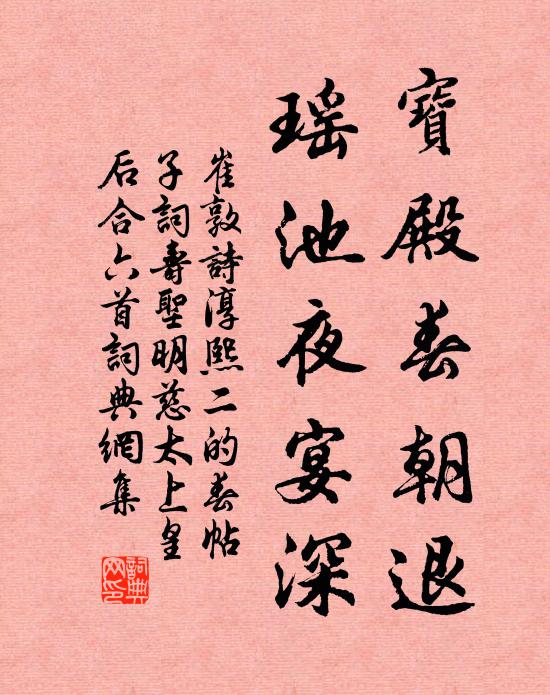 寶殿春朝退
瑤池夜宴深
崔敦詩淳熙二的春帖
子詞壽聖明慈太上皇
后合六首詞典網集
詞典网印